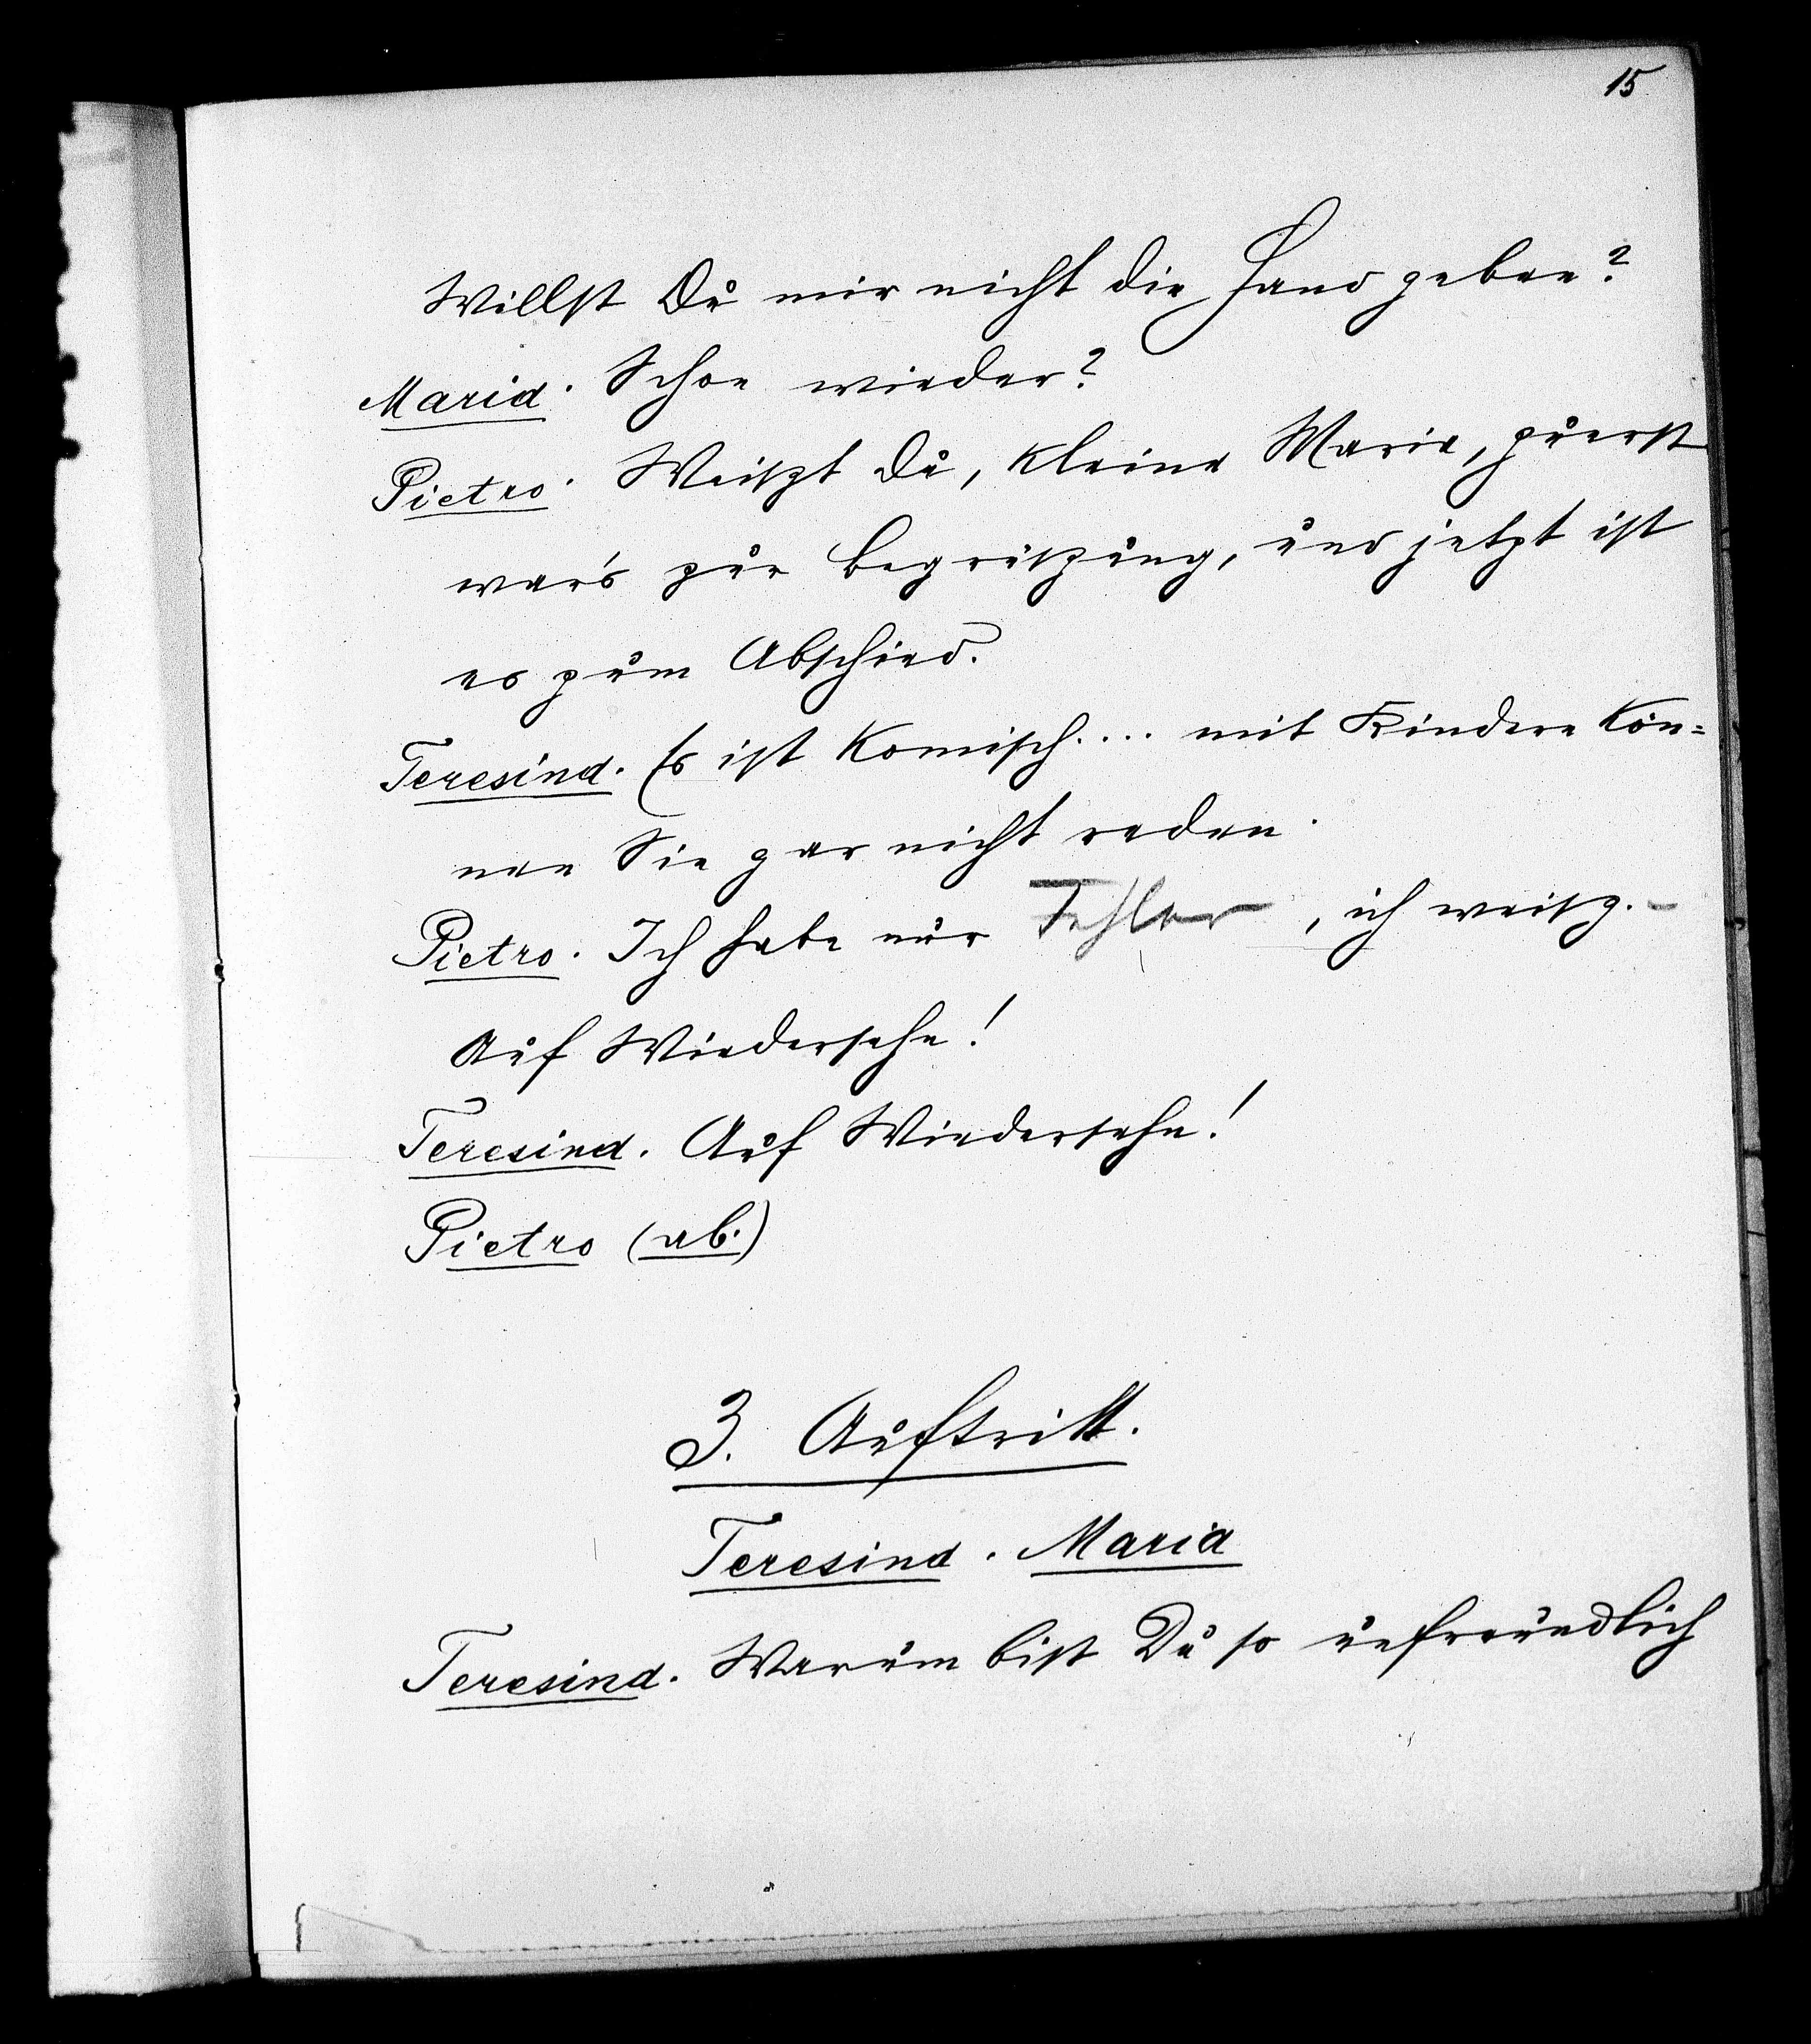 15
Willst Du mir nicht die Hand geben?
Maria. Schon wieder?
Pietro. Weißt Du, kleine Maria, zuerst
war's zur Begrüßung, und jetzt ist
es zum Abschied.
Teresina. Es ist komisch.... mit Kindern kön=
nen Sie gar nicht reden.
Pietro. Ich habe nur Fehler, ich weiß. –
Auf Wiedersehn!
Teresina. Auf Wiedersehn!
Pietro (ab.)
3. Auftritt.
Teresina. Maria
Teresina. Warum bist Du so unfreundlich